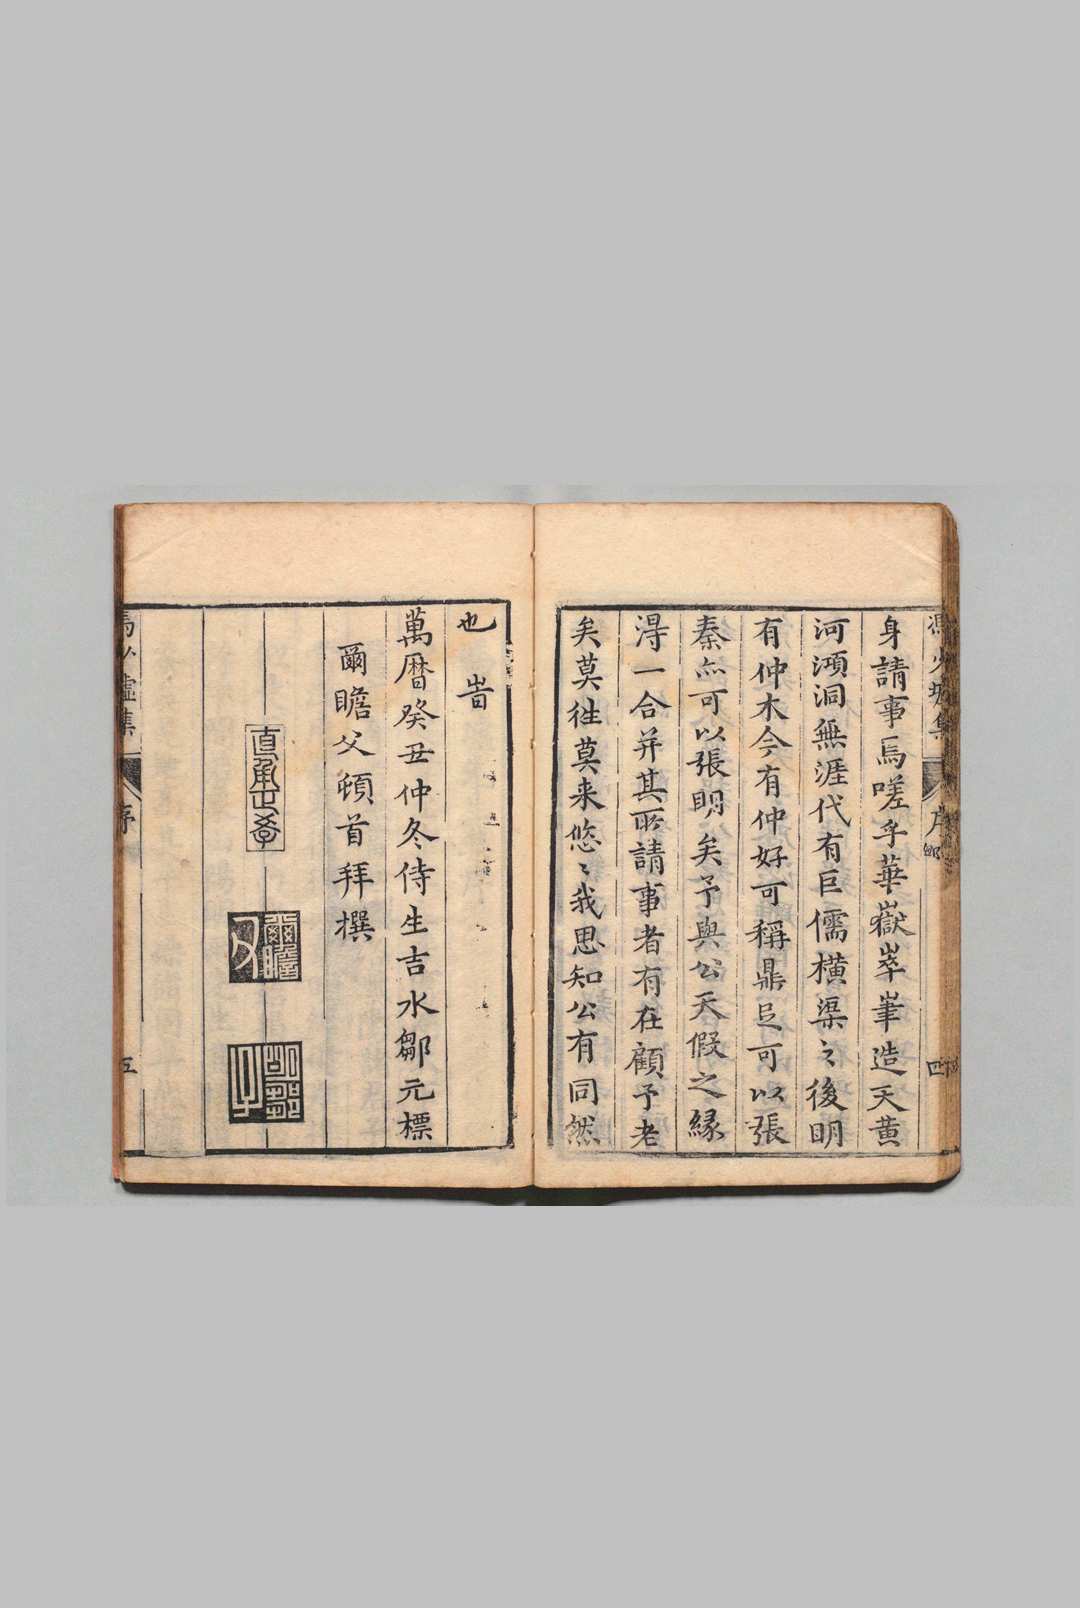 身請事焉嗟乎華嶽崒嵂造天黃
河澒洞無涯代有巨儒橫渠之後明
有仲木今有仲好可稱鼎足可以張
秦亦可以張明矣予與公天假之緣
淂一合并其所請事者有在顧予老
矣莫徃莫来悠〻我思知公有同然
也旹
萬曆癸丑仲冬侍生吉水鄒元標
爾瞻父頓首拜撰
馮少墟集
序
四
馮少墟集
序
五